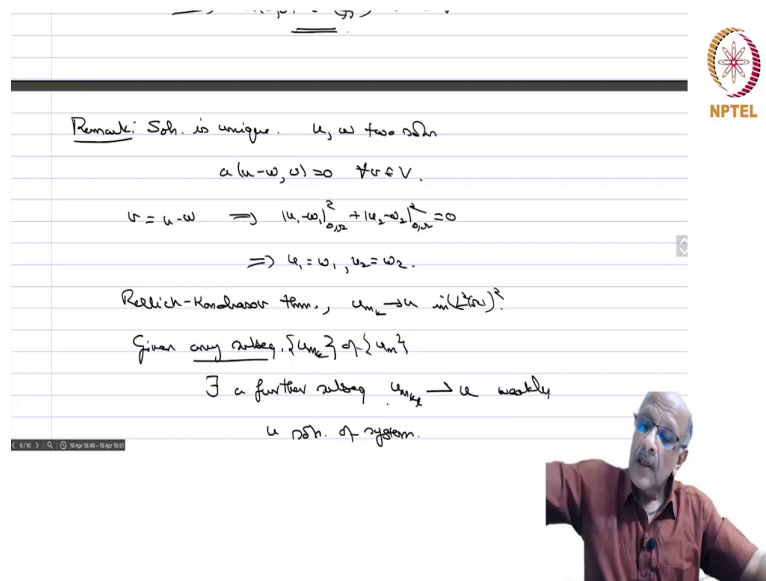 NPTEL
Remark: Soln. is unique. u, w two solns
a(u-w, v) = 0 ∀v ∈ V.
v = u-w ⟹ |u₁-w₁|²₀,Ω + |u₂-w₂|²₀,Ω = 0
⟹ u₁ = w₁, u₂ = w₂.
Rellich-Kondrasov thm., u_{m_k} → u in (L²(Ω))².
Given any subseq. {u_{m_k}} of {u_m}
∃ a further subseq u_{m_{k_l}} ⇀ u weakly
u soln. of system.
6/10
19 Apr 18:49 - 19 Apr 18:51